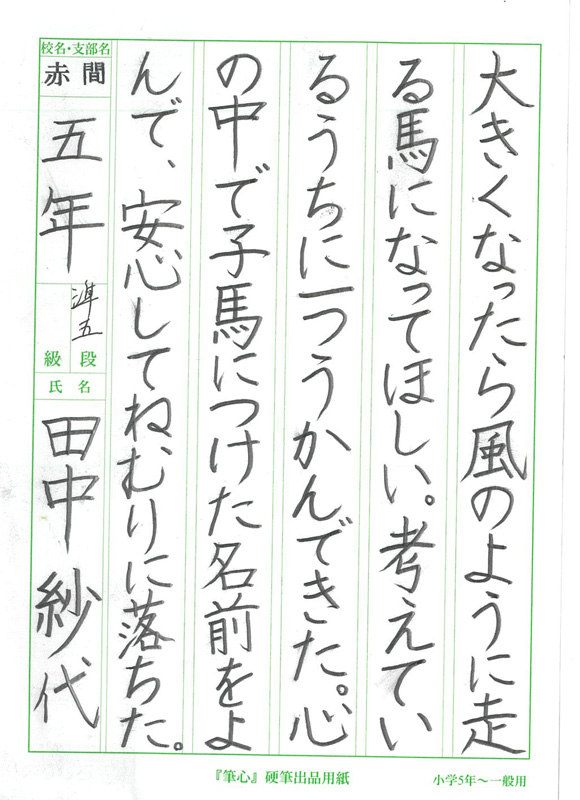 大きくなったら風のように走
る馬になってほしい。考えてい
るうちに一つうかんできた。心
の中で子馬につけた名前をよ
んで、安心してねむりに落ちた。
校名・支部名
赤間
五年
準五
級段
氏名
田中紗代
『筆心』硬筆出品用紙
小学5年～一般用